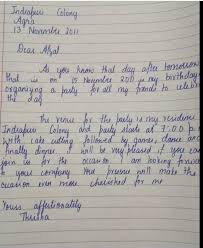 Indrapuri Colony
Agra
13th November 2011
Dear Afzal
As you know that day after tomorrow
that is on 15 November 2011 is my birthday
organizing a party for all my friends to celebr
the day
The venue for the party is my residence
Indrapuri Colony and party starts at 7:00 p.m
with cake cutting followed by games, dance and
finally dinner. I will be very pleased if you can
join us for the occasion. I am looking forward
to your company. You presence will make the
occasion even more cherished for me
Yours affectionately
Thrisha